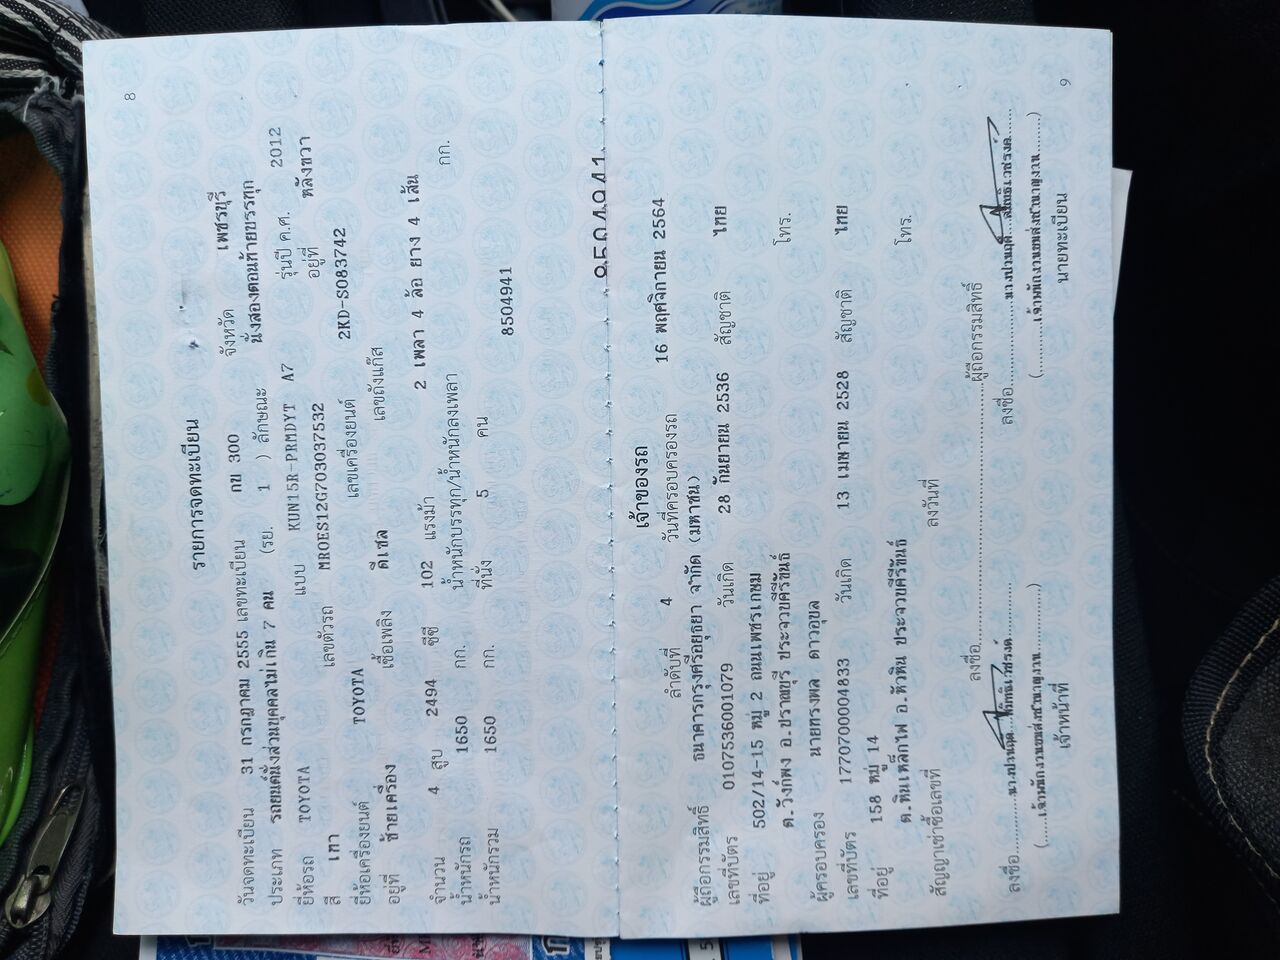 8
รายการจดทะเบียน
วันจดทะเบียน 31 กรกฎาคม 2555 เลขทะเบียน กข 300 จังหวัด เพชรบุรี
ประเภท รถยนต์นั่งส่วนบุคคลไม่เกิน 7 คน (รย. 1 ) ลักษณะ นั่งสองตอนท้ายบรรทุก
ยี่ห้อรถ TOYOTA แบบ KUN15R-PRMDYT A7 รุ่นปี ค.ศ. 2012
สี เทา เลขตัวรถ MROES12G703037532 อยู่ที่ หลังขวา
ยี่ห้อเครื่องยนต์ TOYOTA เลขเครื่องยนต์ 2KD-S083742
อยู่ที่ ซ้ายเครื่อง เชื้อเพลิง ดีเซล เลขถังแก๊ส
จำนวน 4 สูบ 2494 ซีซี 102 แรงม้า 2 เพลา 4 ล้อ ยาง 4 เส้น
น้ำหนักรถ 1650 กก. น้ำหนักบรรทุก/น้ำหนักลงเพลา กก.
น้ำหนักรวม 1650 กก. ที่นั่ง 5 คน 8504941
8504941
เจ้าของรถ
ลำดับที่ 4 วันที่ครอบครองรถ 16 พฤศจิกายน 2564
ผู้ถือกรรมสิทธิ์ ธนาคารกรุงศรีอยุธยา จำกัด (มหาชน)
เลขที่บัตร 0107536001079 วันเกิด 28 กันยายน 2536 สัญชาติ ไทย
ที่อยู่ 502/14-15 หมู่ 2 ถนนเพชรเกษม
ต.วังก์พง อ.ปราณบุรี ประจวบคีรีขันธ์ โทร.
ผู้ครอบครอง นายทรงพล ดาวอุบล
เลขที่บัตร 1770700004833 วันเกิด 13 เมษายน 2528 สัญชาติ ไทย
ที่อยู่ 158 หมู่ 14
ต.หินเหล็กไฟ อ.หัวหิน ประจวบคีรีขันธ์ โทร.
สัญญาเช่าซื้อเลขที่ ลงวันที่
ลงชื่อ ผู้ถือกรรมสิทธิ์
ลงชื่อ ลงชื่อ
(เจ้าพนักงานขนส่งชำนาญงาน) (เจ้าพนักงานขนส่งชำนาญงาน)
เจ้าหน้าที่ นายทะเบียน
9